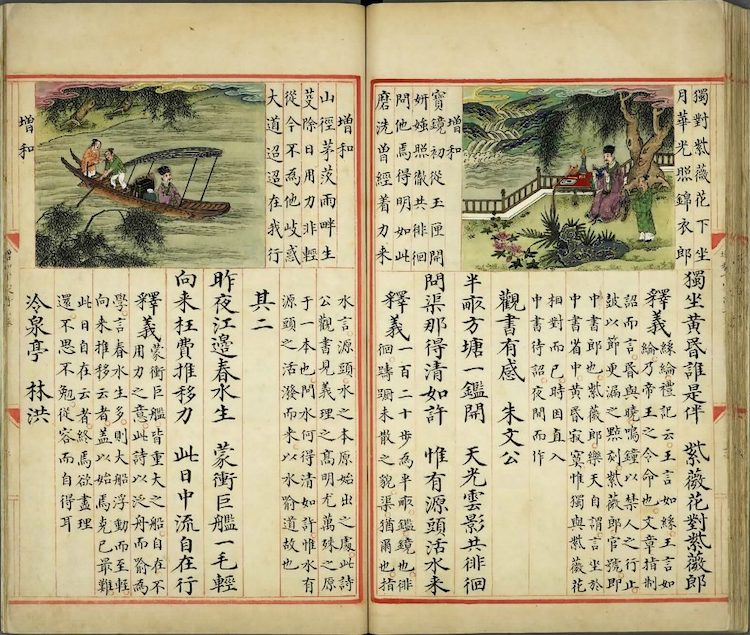 獨對紫薇花下坐
月華光照錦衣郎
增和
寶鏡初從玉匣開
妍媸照徹共徘徊
問他焉得明如此
磨洗曾經着力来
獨坐黃昏誰是伴 紫薇花對紫薇郎
釋義 絲綸禮記云王言如絲王言如
綸綸乃帝王之令命也文章指制
詔而言昏與曉鳴鐘以禁人之行止
鼓以節更漏之點刻紫薇郎官號即
中書郎也紫薇郎樂天自謂言坐於
中書省中黃昏寂寞惟獨與紫薇花
相對而已時因直入
中書待詔夜間而作
觀書有感 朱文公
半畝方塘一鑑開 天光雲影共徘徊
問渠那得清如許 惟有源頭活水来
釋義 一百二十步為半畝鑑鏡也徘
徊躊躕未散之貌渠猶爾也指
增和
山徑茅茨雨畔生
芟除日用力非輕
從今不為他歧惑
大道迢迢在我行
增和
水言源頭水之本原始出之處此詩
公觀書見義理之高明尤萬殊之原
于一本也問水何得清如許惟水有
源頭之活潑而来以水喻道故也
其二
昨夜江邊春水生 蒙衝巨艦一毛輕
向来枉費推移力 此日中流自在行
釋義 蒙衝巨艦皆重大之船自在不
用力之意此詩以泛舟而喻為
學言春水生多則大船浮動而至輕
向来推移云者盖以始焉克已最難
此日自在云者終焉欲盡理
還不思不勉從容而自得耳
冷泉亭 林洪